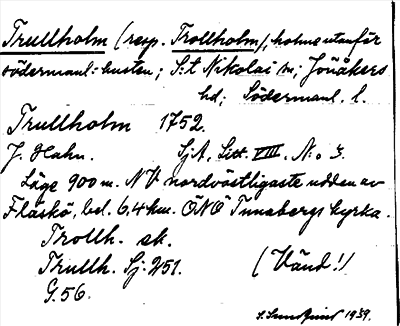 Trullholm (resp. Trollholm), holme utanför
södermanl: kusten; S:t Nikolai sn; Jönåkers
hd; Södermanl. l.
Trullholm 1752.
J. Hahn. SjA, Litt. VIII. N:o 3.
Läge 900 m. NV nordvästligaste udden av
Fläskö, bel. 6,4 km. ÖNÖ Tunabergs kyrka.
Trollh. sk.
Trullh. Sj: 251. (Vänd!)
G. 56.
1939.